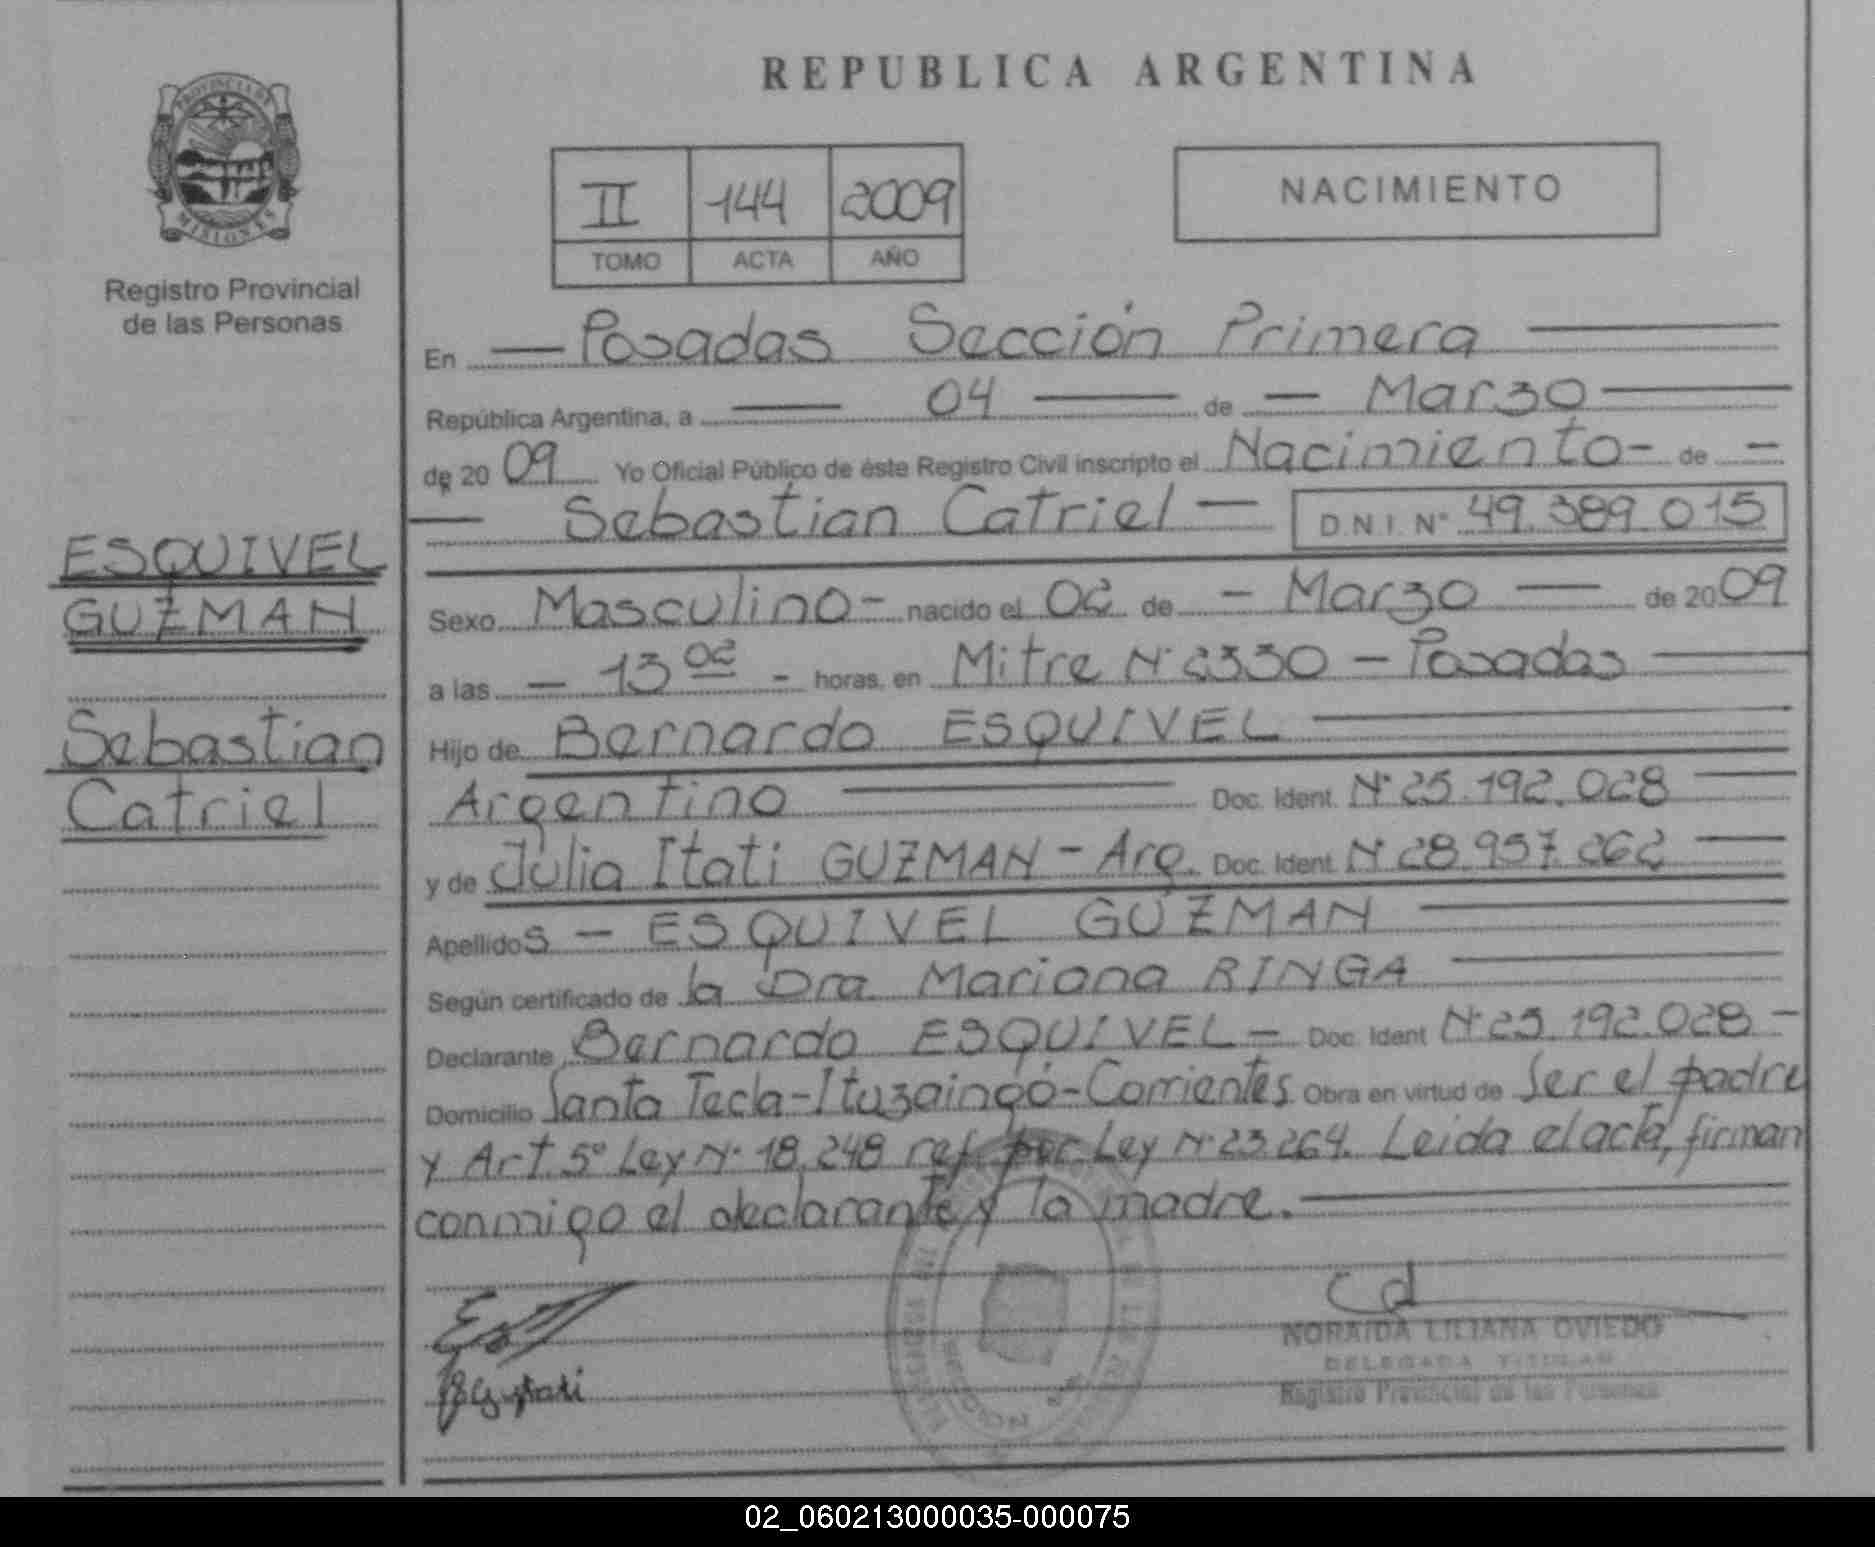 PROVINCIA DE
MISIONES
Registro Provincial
de las Personas
ESQUIVEL
GUZMAN
Sebastian
Catriel
REPUBLICA ARGENTINA
II 144 2009
TOMO ACTA AÑO
NACIMIENTO
En Posadas Sección Primera
República Argentina, a 04 de Marzo
de 2009 Yo Oficial Público de éste Registro Civil inscripto el Nacimiento de
Sebastian Catriel D.N.I. Nº 49.389.015
Sexo Masculino nacido el 02 de Marzo de 2009
a las 13 02 horas, en Mitre Nº 2330 - Posadas
Hijo de Bernardo ESQUIVEL
Argentino Doc. Ident. Nº 25.192.028
y de Julia Itati GUZMAN - Arg. Doc. Ident. Nº 28.957.262
Apellidos - ESQUIVEL GUZMAN
Según certificado de la Dra. Mariana RINGA
Declarante Bernardo ESQUIVEL - Doc. Ident Nº 25.192.028 -
Domicilio Santa Tecla-Ituzaingó-Corrientes Obra en virtud de Ser el padre
y Art. 5º Ley Nº 18.248 ref. por Ley Nº 23.264. Leida el acta, firman
conmigo el declarante y la madre.
NORAIDA LILIANA OVIEDO
DELEGADA TITULAR
Registro Provincial de las Personas
02_060213000035-000075